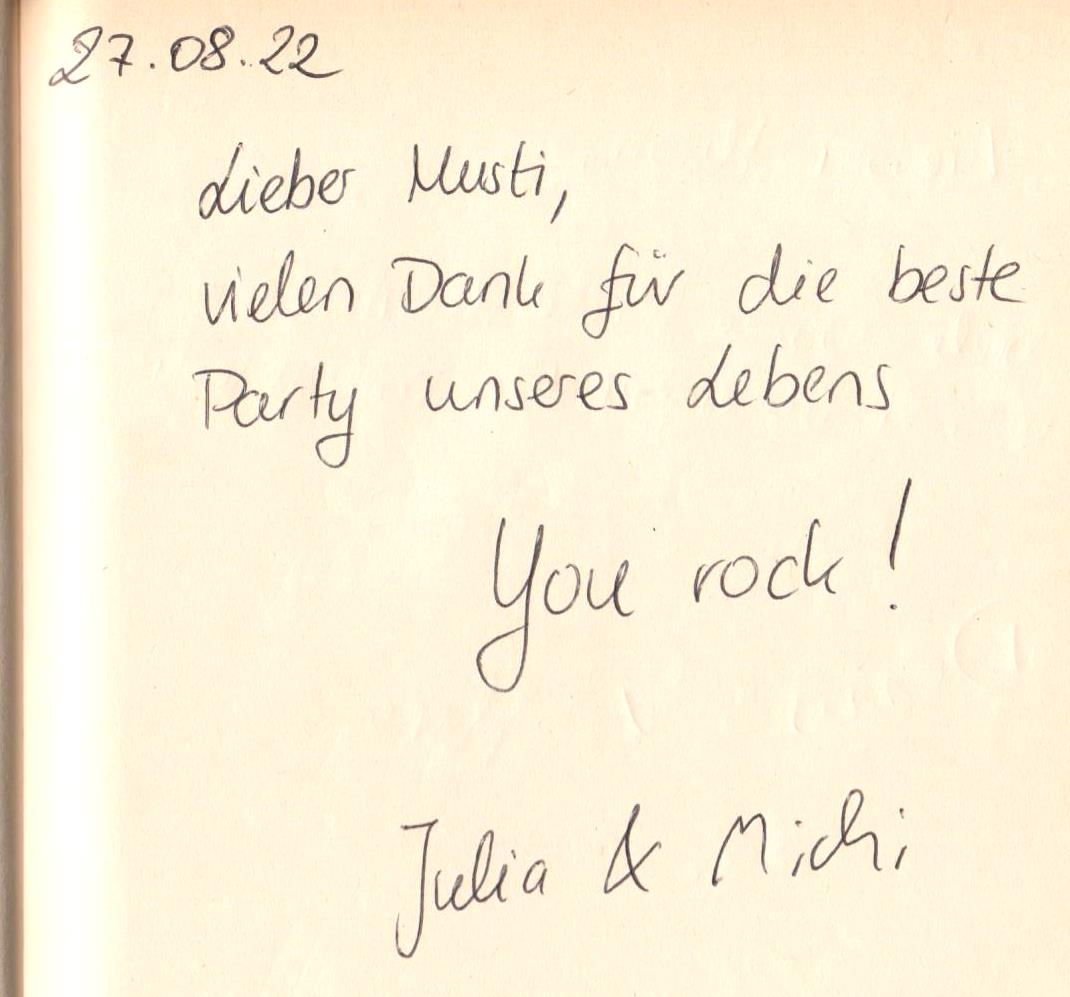 27.08.22
Lieber Musti,
vielen Dank für die beste
Party unseres Lebens
You rock!
Julia & Michi